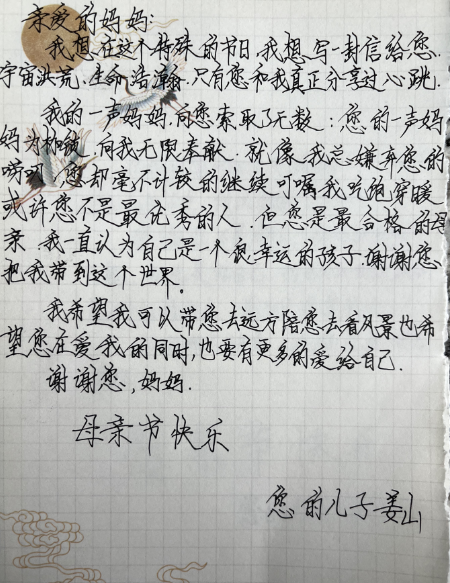 亲爱的妈妈:
我想在这个特殊的节日,我想写一封信给您.
宇宙洪荒,生命浩瀚.只有您和我真正分享过心跳.
我的一声妈妈,向您索取了无数:您的一声妈
妈为你做,向我无限奉献.就像我总嫌弃您的
唠叨,您却毫不计较的继续叮嘱我吃饱穿暖
或许您不是最优秀的人.但您是最合格的母
亲.我一直认为自己是一个很幸运的孩子.谢谢您
把我带到这个世界。
我希望我可以带您去远方陪您去看风景也希
望您在爱我的同时,也要有更多的爱给自己.
谢谢您,妈妈.
母亲节快乐
您的儿子姜山